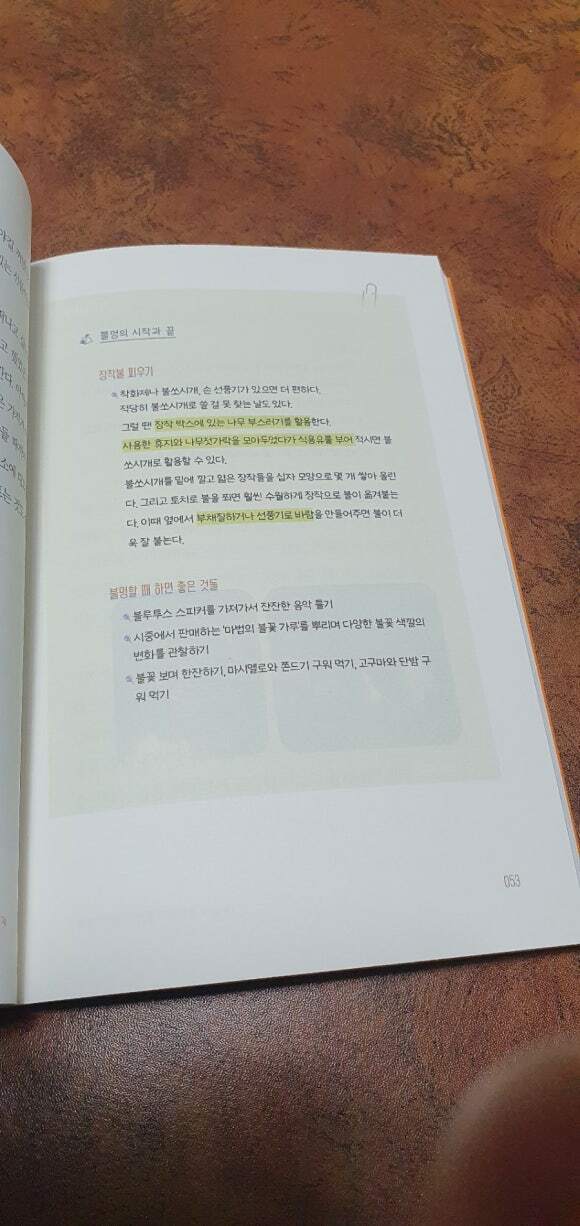 불멍의 시작과 끝
장작불 피우기
착화제나 불쏘시개, 손 선풍기가 있으면 더 편하다.
적당히 불쏘시개로 쓸 걸 못 찾는 날도 있다.
그럴 땐 장작 박스에 있는 나무 부스러기를 활용한다.
사용한 휴지와 나무젓가락을 모아두었다가 식용유를 부어 적시면 불
쏘시개로 활용할 수 있다.
불쏘시개를 밑에 깔고 얇은 장작들을 십자 모양으로 몇 개 쌓아 올린
다. 그리고 토치로 불을 쬐면 훨씬 수월하게 장작으로 불이 옮겨붙는
다. 이때 옆에서 부채질하거나 선풍기로 바람을 만들어주면 불이 더
욱 잘 붙는다.
불멍할 때 하면 좋은 것들
블루투스 스피커를 가져가서 잔잔한 음악 틀기
시중에서 판매하는 '마법의 불꽃 가루'를 뿌리며 다양한 불꽃 색깔의
변화를 관찰하기
불꽃 보며 한잔하기, 마시멜로와 쫀드기 구워 먹기, 고구마와 단밤 구
워 먹기
053